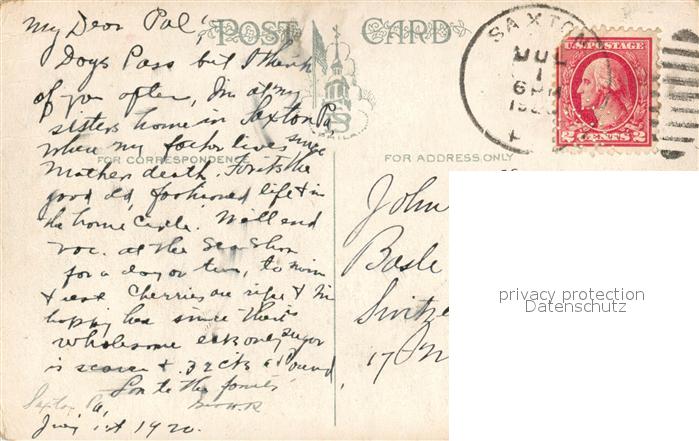 My Dear Pal'
POST CARD
Days Pass but I think
of you often, I'm at my
sisters home in Saxton Pa
where my father lives since
FOR CORRESPONDENCE
Mothers death. For its the
good old fashioned life & in
the home Circle. Will end
voc. at the Sea Shore
for a day or two, to swim
& rest Cherries are ripe & I'm
happy here since there's
wholesome eats only sugar
is scarce & 32 cts a Pound
to the
Saxton Pa,
July 1st 1920.
SAXTON
JUL
1
6 PM
U.S. POSTAGE
2 CENTS 2
FOR ADDRESS ONLY
John
Basle
Switze
17
privacy protection
Datenschutz